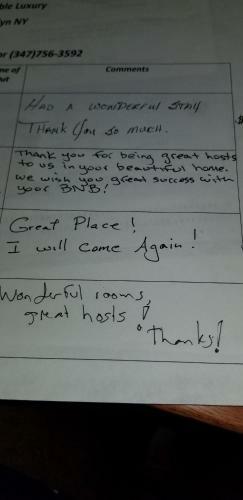 ble Luxury
lyn NY
or (347)756-3592
me of
ut
Comments
HAD A WONDERFUL STAY
THANK YOU SO MUCH.
Thank you for being great hosts
to us in your beautiful home.
we wish you great success with
your BNB!
Great Place!
I will come Again!
Wonderful rooms,
great hosts!
Thanks!